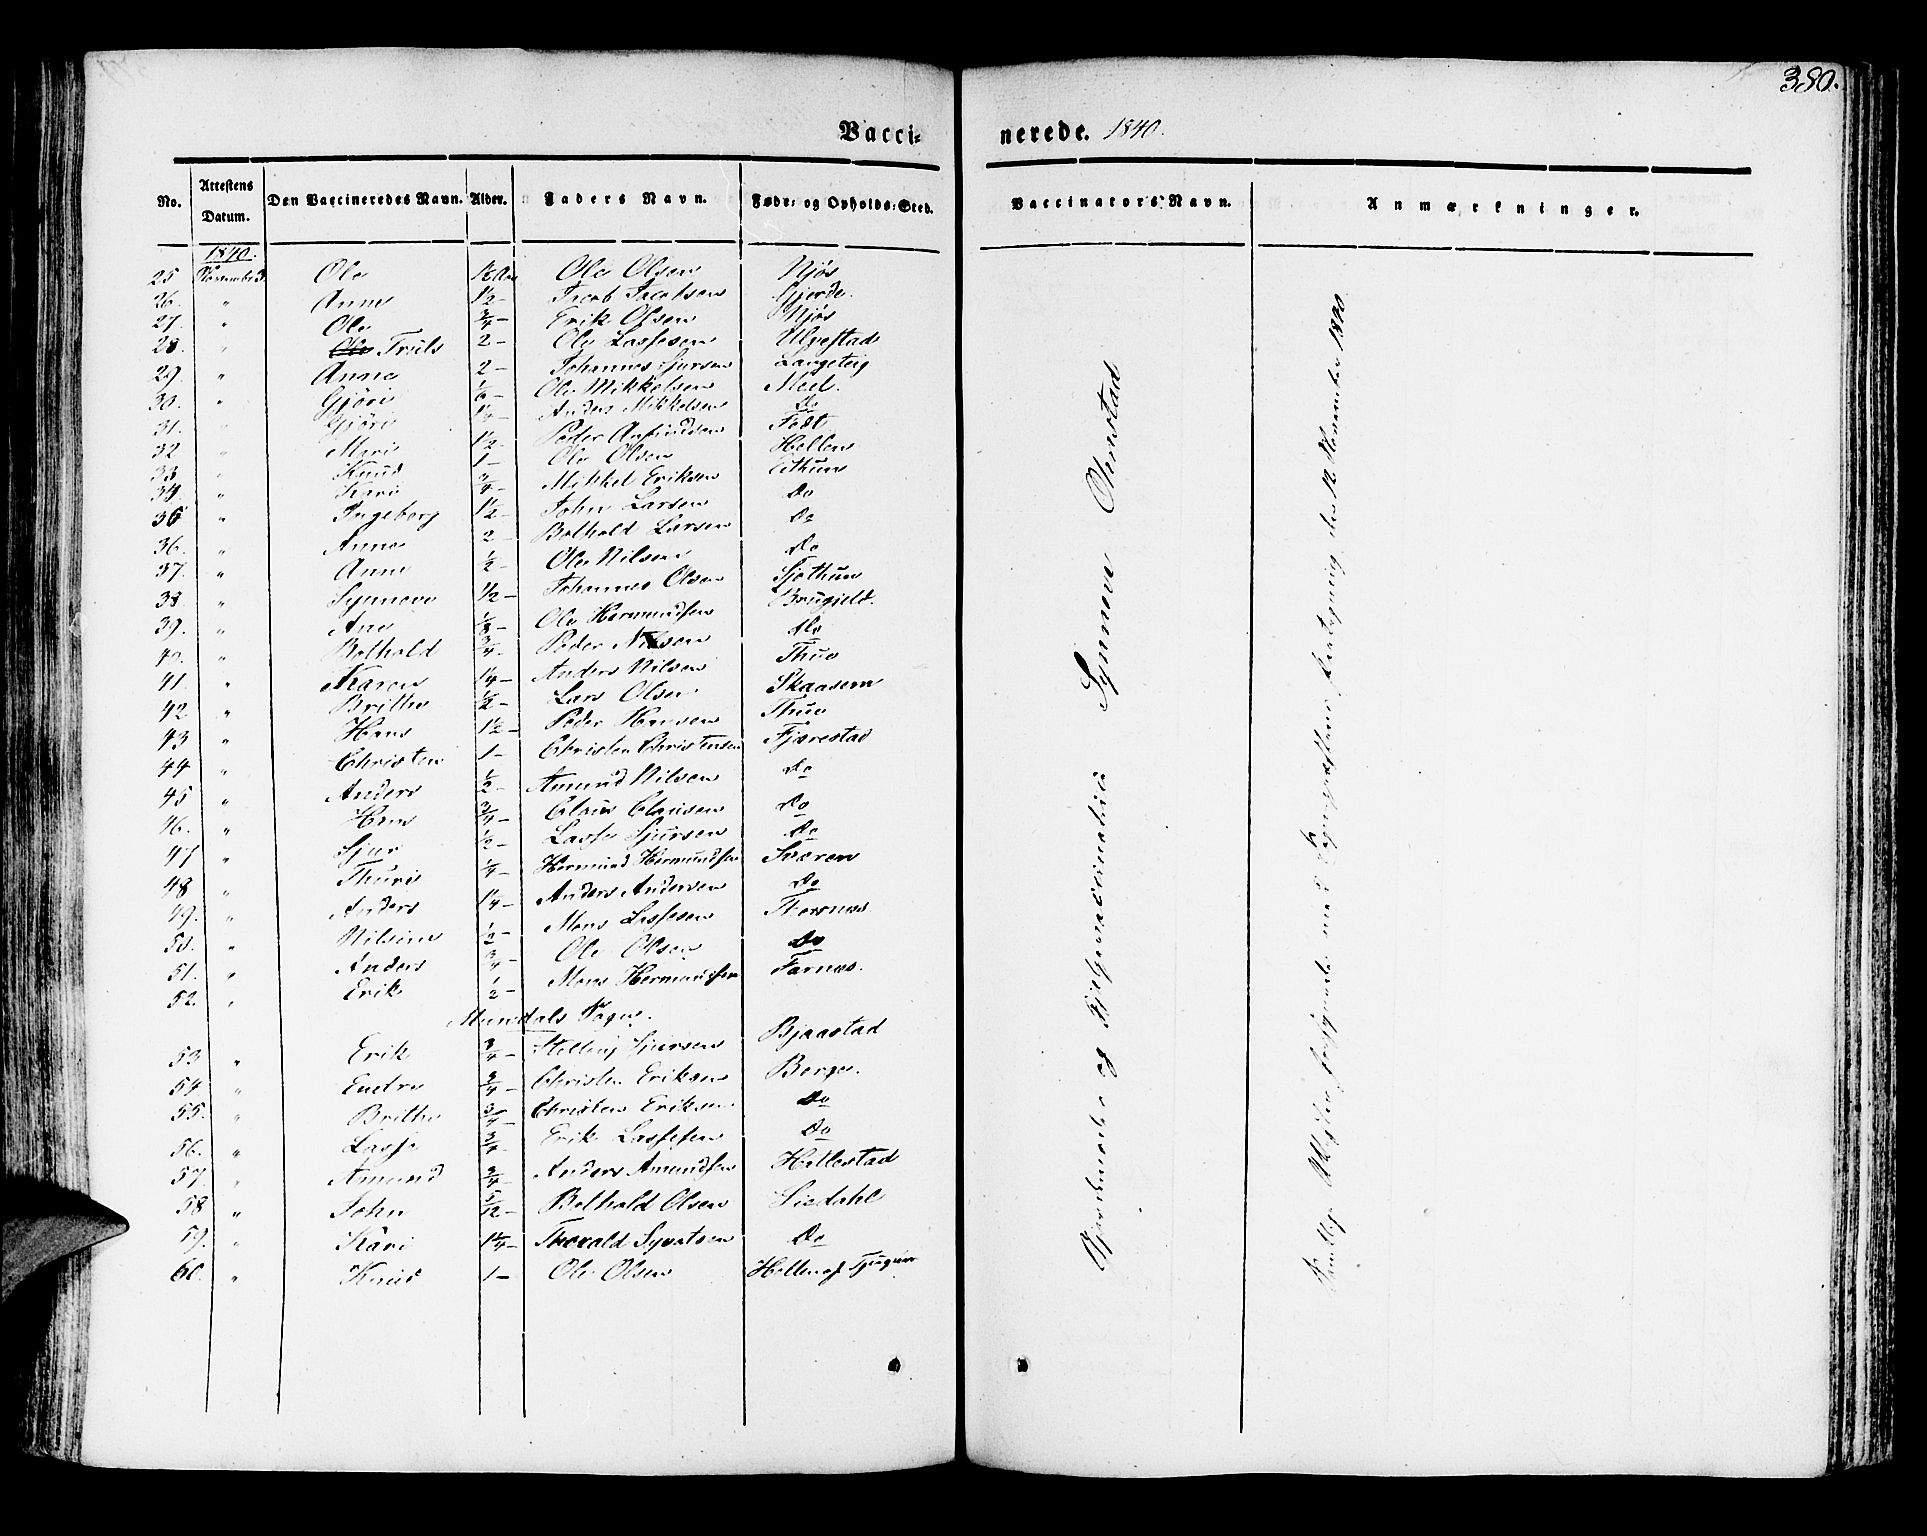 380.
Vacci- nerede. 1840.
No. Attestens Datum. Den Vaccineredes Navn. Alder. Faders Navn. Føde- og Opholds-Sted. Vaccinators Navn. Anmærkninger.
1840.
25 November 3 Ole 1½ Ole Olsen Njøs
26. " Anne 1½ - Jacob Jacobsen Gjerde.
27. " Ole ¾ - Erik Olsen Njøs
28 " Ole Truls 2 - Ole Lassesen Ulvestad
29. " Anna 2 - Johannes Sjursen Langeteig
30. " Gjøri Ole Mikkelsen Meel.
31. " Gjøri 1¼ - Anders Mikkelsen Do
32 " Mari 1½ - Peder Amundsen
33 " Knud 1 - Ole Olsen Hellene
34. " Kari ¾ - Mikkel Eriksen Eithun
35 " Ingeborg 1½ - John Larsen Do
36. " Anna 2 - Bothold Larsen Do
37. " Anne ½ - Ole Nilsen Do
38 " Synneve 1½ - Johannes Olsen Sjøthun
39. " Ane Ole Hermundsen Brugjeld.
40. " Bothold ¾ - Peder Nilsen Do
41. " Karen 1¼ - Anders Nilsen Thue
42 " Brithe ½ - Lars Olsen Skaasem
43 " Hans 1½ - Peder Hansen Thue
44 " Christen 1 - Christen Christensen Fjærestad
45 " Anders ½ - Amund Nilsen Do
46. " Hans ¾ - Claus Clausen Do
47 " Sjur ½ - Lasse Sjursen Do
48 " Thuri ¼ - Hermund Hermundsen Sværen
49. " Anders 1¼ - Anders Andersen Do
50. " Nilsine ½ - Mons Lassesen Thorsnæs
51. " Anders ¾ - Ole Olsen Do
52. " Erik ½ - Mons Hermundsen Farnæs.
Mundals Sogn.
53 " Erik ¾ - Stelling Sjursen Bjaastad
54 " Endre ¾ - Christen Eriksen Berge.
55. " Brithe ¾ - Christen Eriksen Do
56. " Lasse Erik Lassesen Do
57. " Amund ¾ - Anders Amundsen Hillestad
58 " John 5/12 - Bothold Olsen Siedahl
59. " Kari 1¼ - Thorvald Syvatsen Do
60. " Knud 1 - Ole Olsen Hellene Tjugum
Gjordemoder og Hjelpevaccinatrice Synneve Olmstad
den 12 November 1840